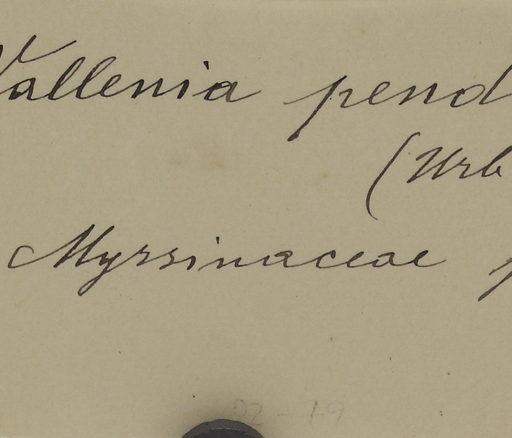 Wallenia pend
(Urb
Myrsinaceae p
02-19